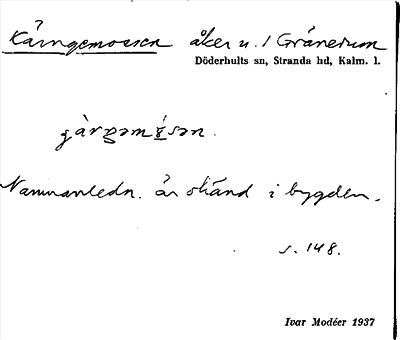 Kärngemossen åker u. / Gränerum
Döderhults sn, Stranda hd, Kalm. l.
Namnanledn. är okänd i bygden.
s. 148.
Ivar Modéer 1937